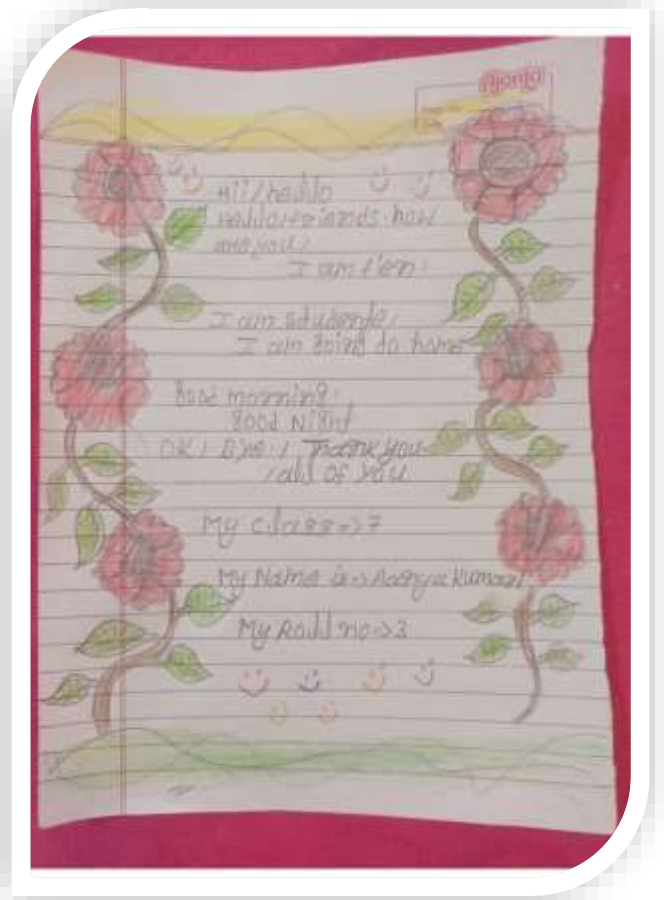 Ajanta
Hii/hello
Hello/friends how
are you/
I am fien!
I am studente/
I am going do home
good morning!
good Night
OK / Bye / Thank you
/all of you
My class => 7
My Name is => Kumari
My Roll no => 3